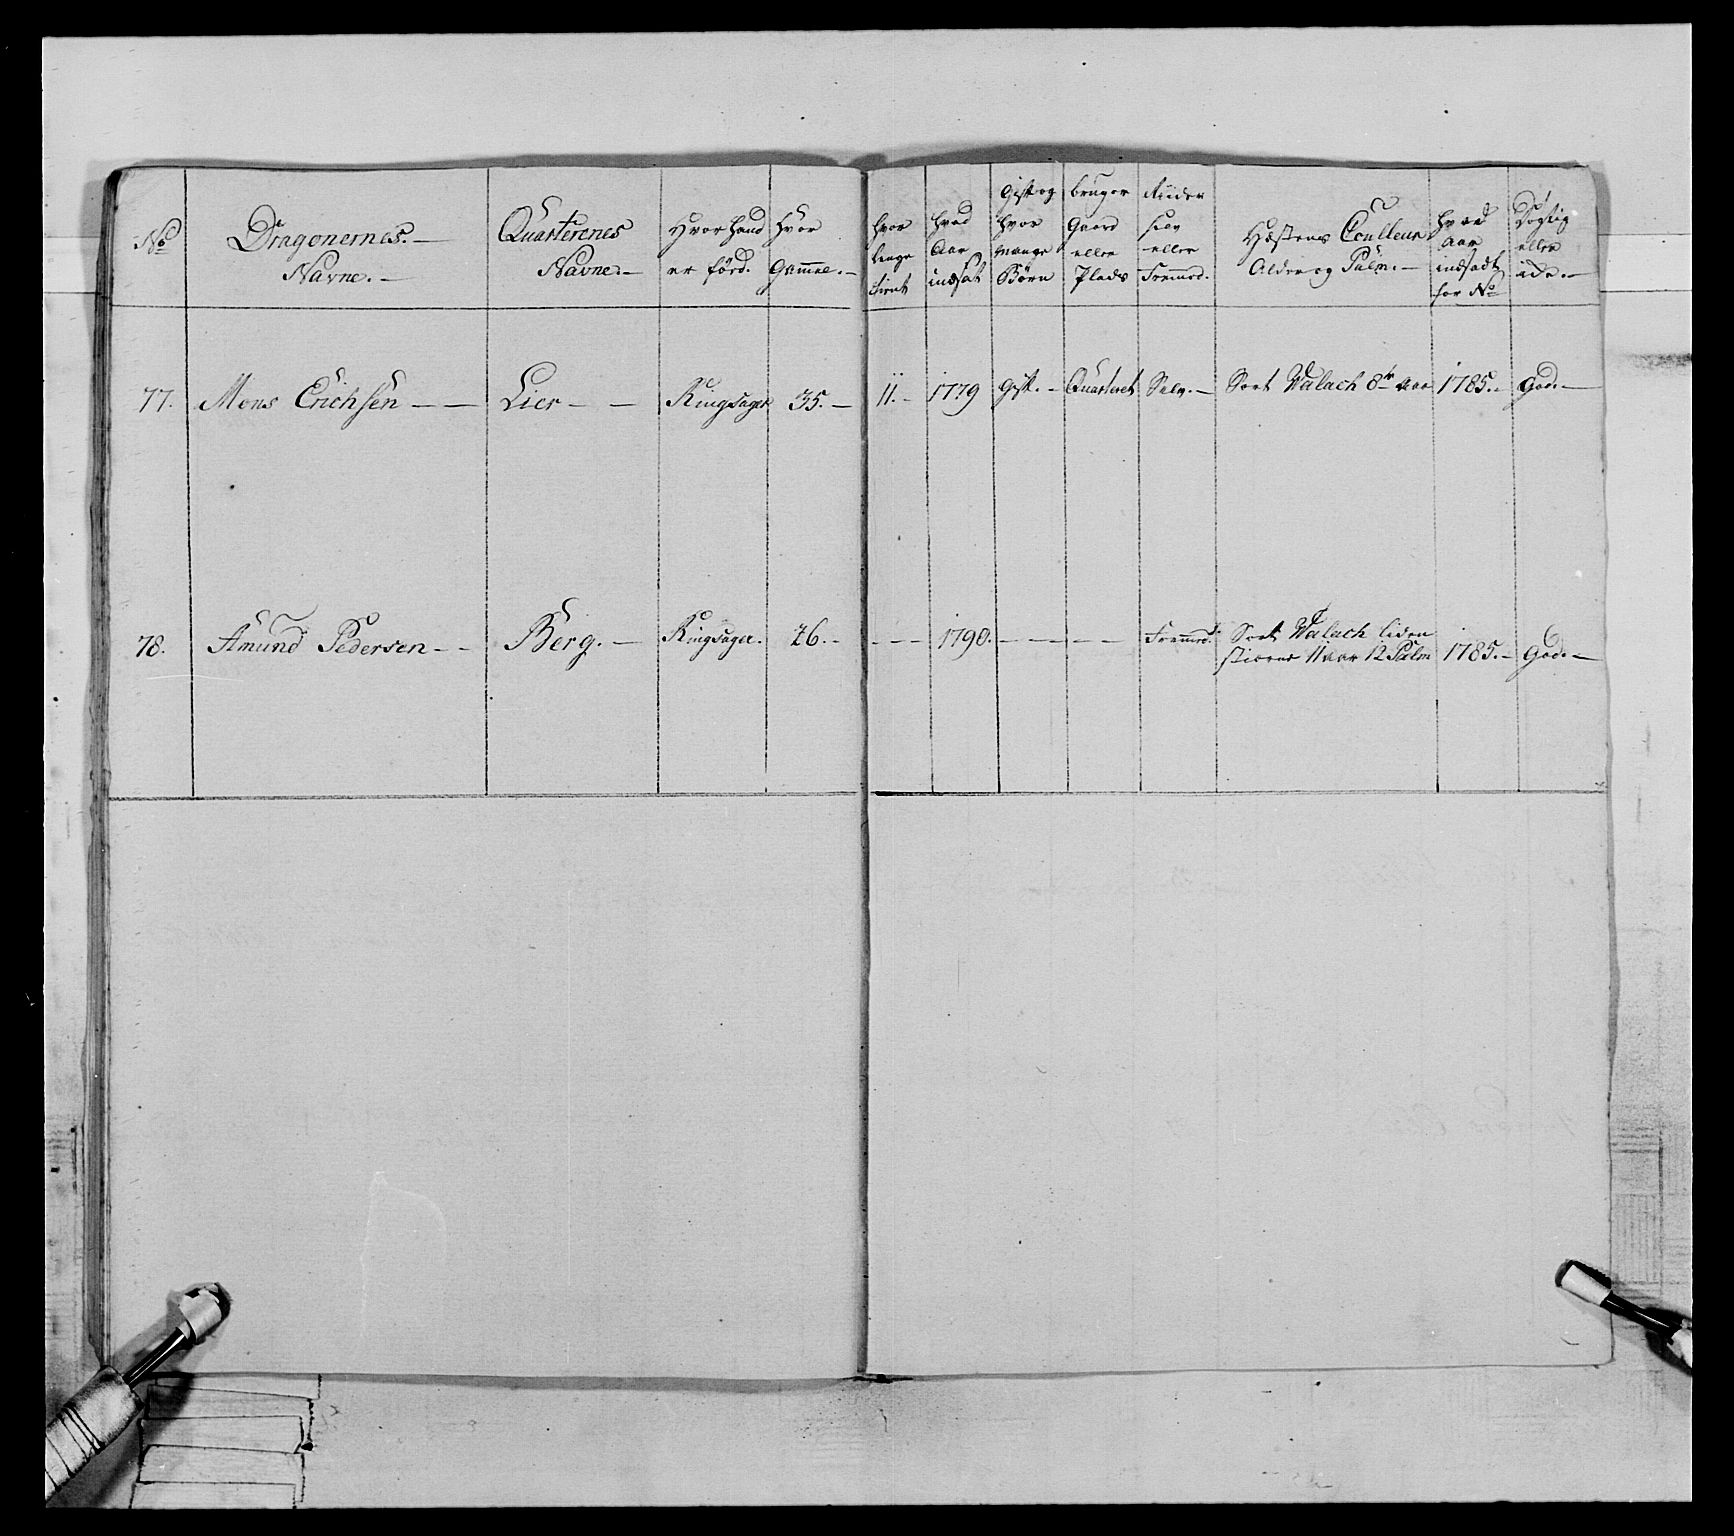 No
Dragonernes.
Navne.
Quarterenes
Navne
Hvor hand
er förd.
Hvor
Gammel.
hvor
lenge
tient
hvad
Aar
indsat
Gift og
hvor
mange
Börn
bruger
Gaard
eller
Plads
Riider
selv
eller
Fremed.
Hæstens Coulleur
Alder og Palm.
hvad
Aar
indsadt
for No
Dögtig
eller
77. Mons Erichsen Lier Ringsager 35. 11. 1779 Gift. Quarteret Selv. Sort Walach 8te Aar 1785. God.
78. Amund Pedersen Berg. Ringsager. 26. 1790. Fremed. Sort Walach liden
stierne 11 aar 12 Palm 1785. God.